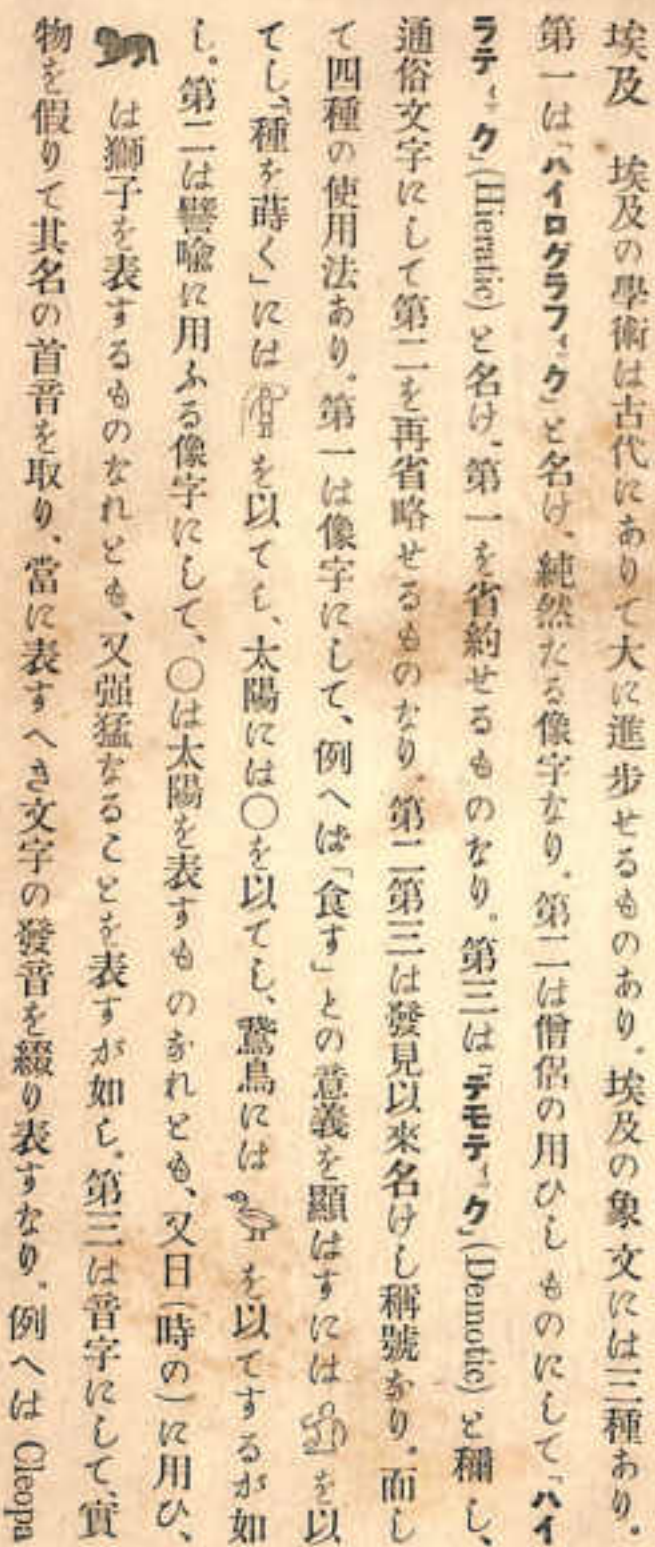 埃及　埃及の學術は古代にありて大に進歩せるものあり。埃及の象文には三種あり。
第一は「ハイログラフィク」と名け、純然たる像字なり。第二は僧侶の用ひしものにして「ハイ
ラティク」(Hieratic)と名け、第一を省約せるものなり。第三は「デモティク」(Demotic)と稱し、
通俗文字にして第二を再省略せるものなり。第二第三は發見以來名けし稱號なり。而し
て四種の使用法あり。第一は像字にして、例へは「食す」との意義を顯はすには を以
てし、「種を蒔く」には を以てし、太陽には〇を以てし、鵞鳥には を以てするが如
し。第二は譬喩に用ふる像字にして、〇は太陽を表すものなれとも、又日(時の)に用ひ、
は獅子を表するものなれとも、又强猛なることを表すが如し。第三は音字にして、實
物を假りて其名の首音を取り、當に表すへき文字の發音を綴り表すなり。例へは Cleopa